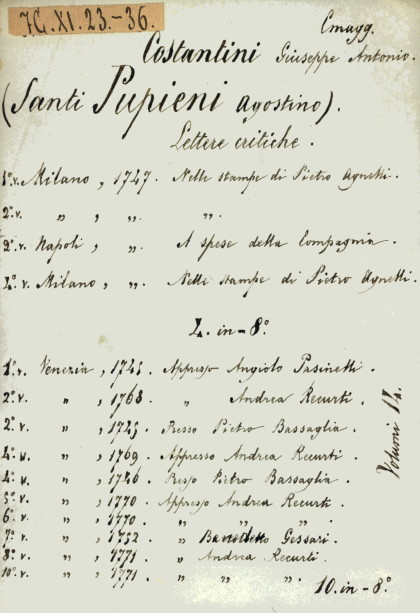 7G.XI.23.-36.
Cmagg.
Costantini Giuseppe Antonio.
(Santi Pupieni Agostino).
Lettere critiche.
1º.v. Milano, 1747. Nelle stampe di Pietro Agnelli.
2º.v. " , ". ".
2º.v. Napoli, ". A spese della Compagnia.
4º.v. Milano, ". Nelle stampe di Pietro Agnelli.
4. in-8º
1º.v. Venezia, 1745. Appresso Angiolo Pasinelli.
2º.v. " , 1768. " Andrea Recurti.
2º.v. " , 1745. Presso Pietro Bassaglia.
4º.v. " , 1769. Appresso Andrea Recurti.
4º.v. " , 1746. Presso Pietro Bassaglia.
5º.v. " , 1770. Appresso Andrea Recurti.
6º.v. " , 1770. " " "
7º.v. " , 1752. " Benedetto Gessari.
8º.v. " , 1771. " Andrea Recurti.
10º.v. " , 1771. " " ".
10. in-8º
Volumi 14.